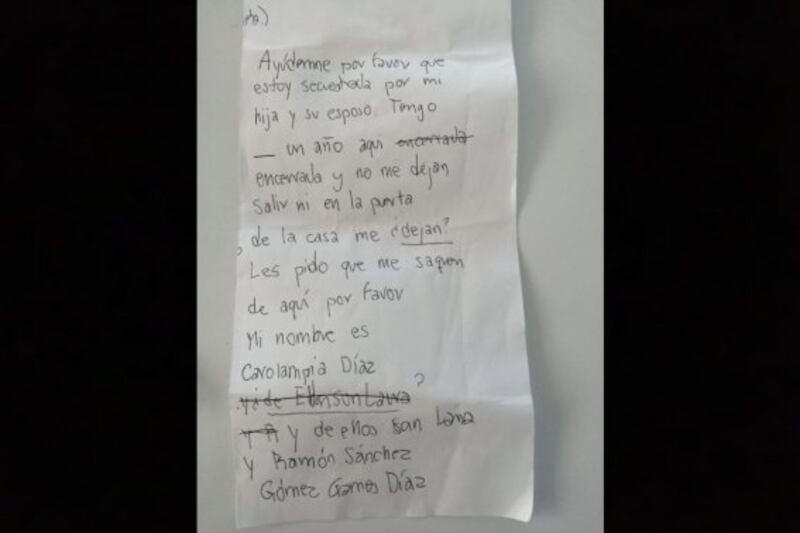 Ayúdenme por favor que
estoy secuestrada por mi
hija y su esposo. Tengo
_ un año aqui encerrada
encerrada y no me dejan
Salir ni en la puerta
de la casa me ¿dejan?
Les pido que me saquen
de aquí por favor
Mi nombre es
Carolampia Díaz
?
y y de ellos son
y Ramón Sánchez
Gómez Gomes Díaz